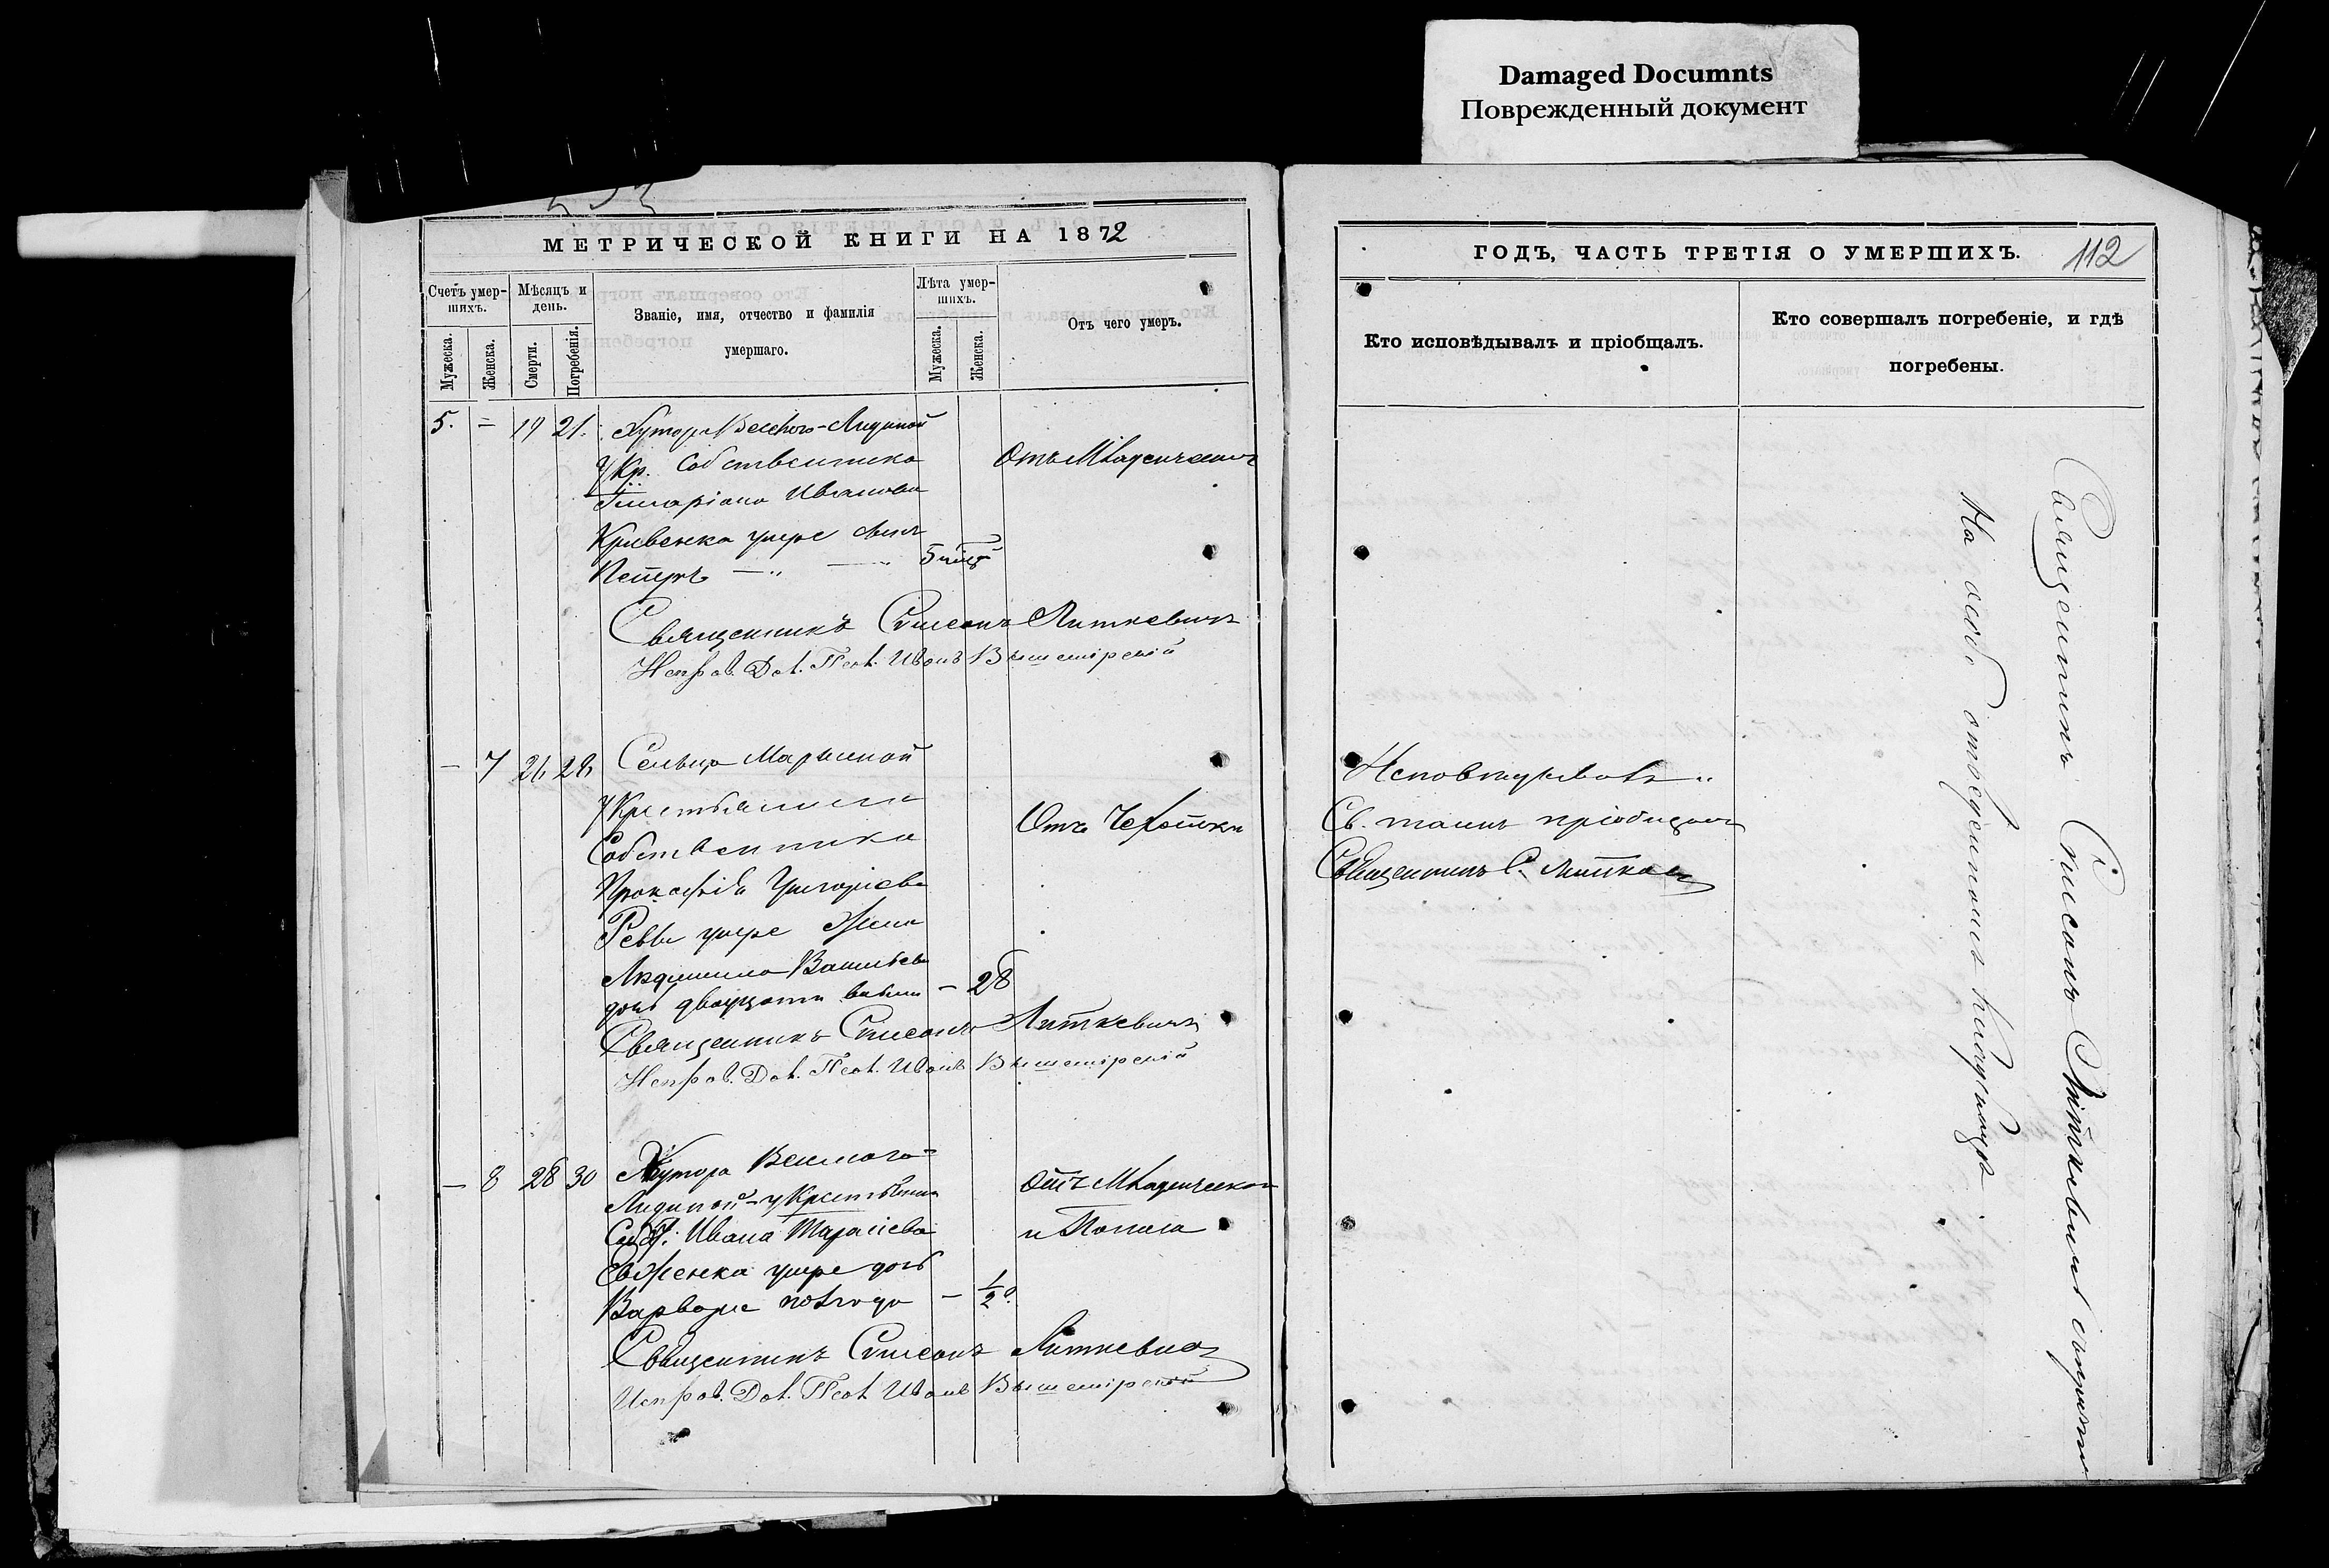 Damaged Documnts
Поврежденный документ
МЕТРИЧЕСКОЙ КНИГИ НА 1872
Счетъ умер-
шихъ.
Мужеска.
Женска.
Мѣсяцъ и
день.
Смерти.
Погребенія.
Званіе, имя, отчество и фамилія
умершаго.
Лѣта умер-
шихъ.
Мужеска.
Женска.
Отъ чего умеръ.
5. = 19 21. Хутора Лидиной
у Кр. Собственника
Иванова
Кривенка умре сынъ
Петръ — " — 5 мцъ
Отъ Младенческой
Священникъ Симеонъ Литкевичъ
Испр. д. Пс. Иванъ Вышемірскій
— 7 26 28 Сельца Марьиной
у Крестьянина
Собственника
Прокофія Григоріева
Ревы умре Жена
Людмила Васильева
дочь двадцати восьми — 28
Отъ Чехотки
Священникъ Симеонъ Литкевичъ
Иванъ Вышемірскій
— 8 28 30 Хутора
Лидиной у Крестьянина
Соб. Ивана Тарасіева
Евженка умре дочь
Варвара полгода — 1/2 г.
Отъ Младенческой
и Поноса
Священникъ Симеонъ Литкевичъ
Иванъ Вышемірскій
ГОДЪ, ЧАСТЬ ТРЕТІЯ О УМЕРШИХЪ.
112
Кто исповѣдывалъ и пріобщалъ.
Кто совершалъ погребеніе, и гдѣ
погребены.
Исповѣдывалъ и
Св. таинъ пріобщалъ
Священникъ С. Литкевичъ
Священникъ Симеонъ Литкевичъ
На особо отведенномъ кладбищѣ